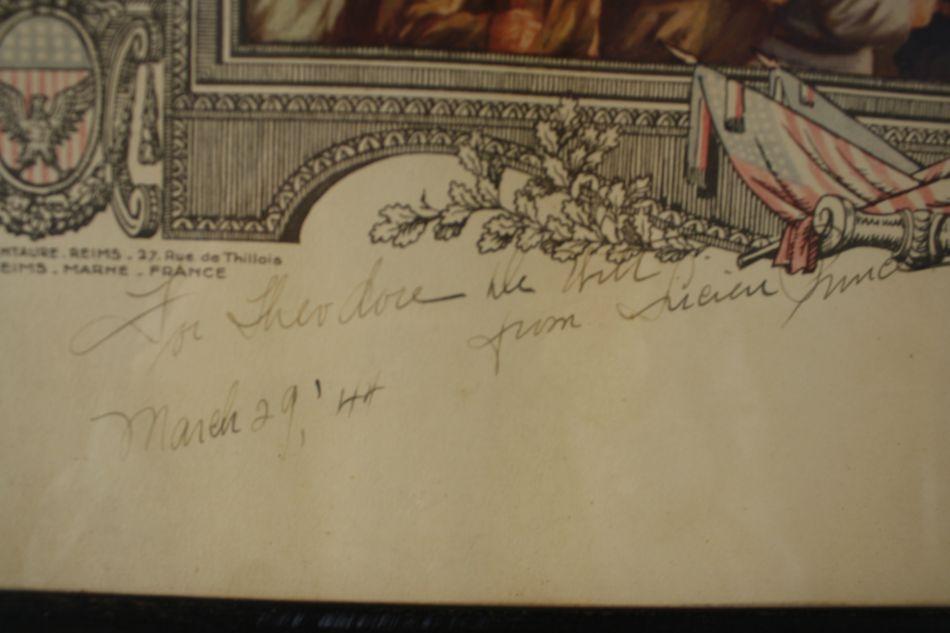 NTAURE . REIMS . 27. Rue de Thillois
EIMS . MARNE . FRANCE
For Theodore De Witt
from Lucien
March 29, '44